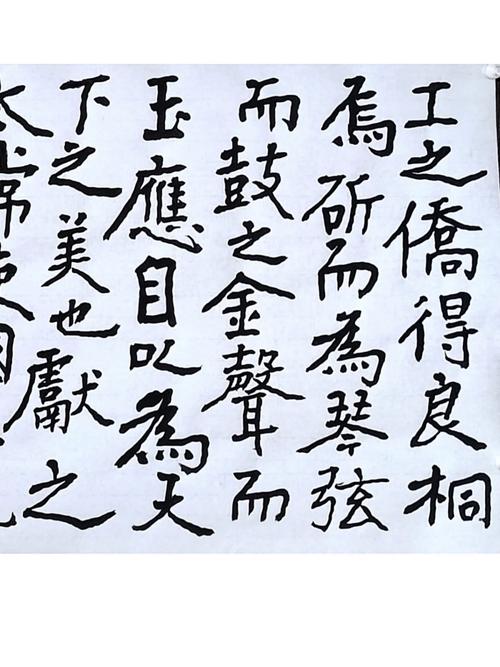 工之僑得良桐
焉斫而為琴弦
而鼓之金聲而
玉應自以為天
下之美也獻之
太常